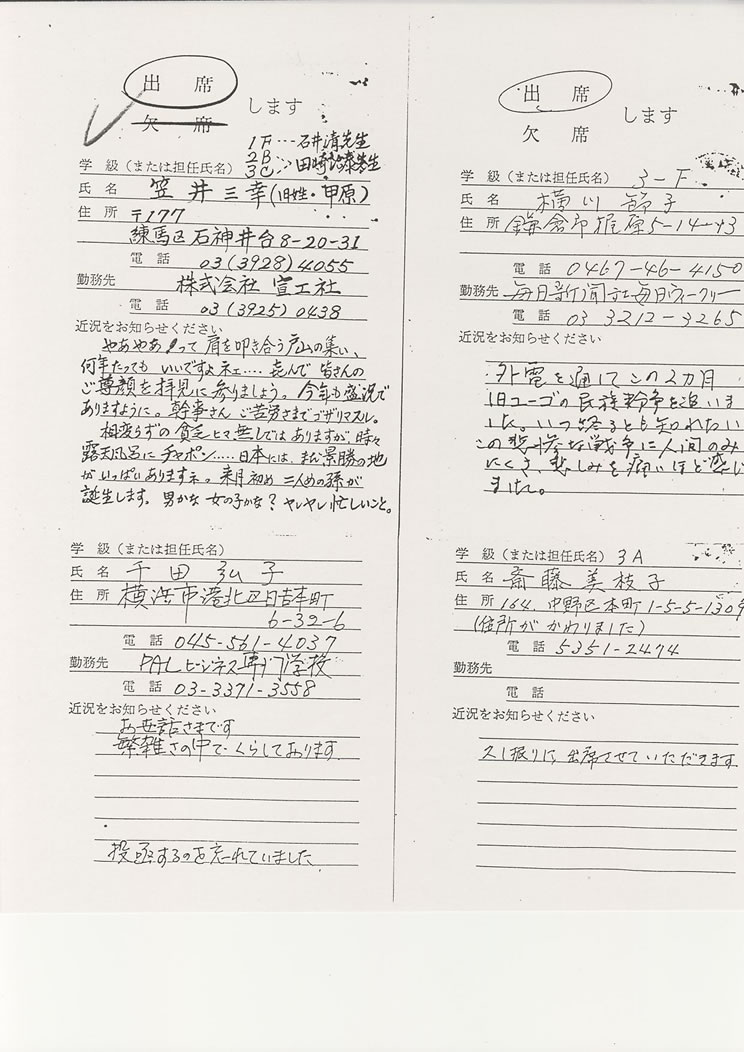 出　席
欠　席
します
1F…石井清先生
2B
3C
学　級（または担任氏名）
氏　名　笠井三幸（旧姓・甲原）
住　所　〒177
練馬区石神井台8-20-31
電　話　03(3928)4055
勤務先　株式会社 宣工社
電　話　03(3925)0438
近況をお知らせください
やあやあ！って肩を叩き合う戸山の集い、
何年たってもいいですよネェ…. 喜んで 皆さんの
ご尊顔を拝見に参りましょう。今年も盛況で
ありますように。幹事さんご苦労さまでゴザリマスル。
相変らずの貧乏ヒマ無しではありますが、時々
露天風呂にチャポン….. 日本には、まだ景勝の地
がいっぱいありますネ。来月初め 二人めの孫が
誕生します。男かな 女の子かな？ ヤレヤレ忙しいこと。
学　級（または担任氏名）
氏　名　千田弘子
住　所　横浜市港北区日吉本町
6-32-6
電　話　045-561-4037
勤務先　PALビジネス専門学校
電　話　03-3371-3558
近況をお知らせください
お世話さまです
繁雑さの中で くらしております
投函するのを忘れていました
出　席
欠　席
します
学　級（または担任氏名）　3-F
氏　名　横川節子
住　所　鎌倉市梶原5-14-43
電　話　0467-46-4150
勤務先　毎日新聞社毎日ウィークリー
電　話　03 3212-3265
近況をお知らせください
外電を通してこの2カ月
旧ユーゴの民族紛争を追いま
した。いつ終るとも知れない
この悲惨な戦争に人間のみ
にくさ、悲しみを痛いほど感じ
ました。
学　級（または担任氏名）　3A
氏　名　斎藤美枝子
住　所　164 中野区本町1-5-5-1309
（住所が かわりました）
電　話　5351-2474
勤務先
電　話
近況をお知らせください
久し振りに出席させていただきます